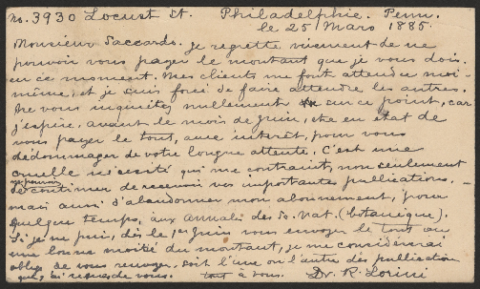 No. 3930 Locust St. Philadelphie. Penn.
le 25 Mars 1885.
Monsieur Saccardo. je regrette vivement de ne
pouvoir vous payer le montant que je vous dois
en ce moment. Mes clients me font attendre moi-
même, et je suis forcé de faire attendre les autres.
Ne vous inquiétez nullement sur ce point, car
j'espère, avant le mois de juin, être en état de
vous payer le tout, avec intérêt, pour vous
dédommager de votre longue attente. C'est une
cruelle nécessité qui me contraint, non seulement
de continuer de recevoir vos importantes publications
mais aussi d'abandonner mon abonnement, pour
quelque temps, aux Annals des Sc. Nat. (botanique).
Si je ne puis, dès le 1er juin vous envoyer le tout ou
une bonne moitié du montant, je me considérerai
obligé de vous renvoyer, soit l'une ou l'autre des publications
que j'ai reçues de vous. tout à vous. Dr. R.